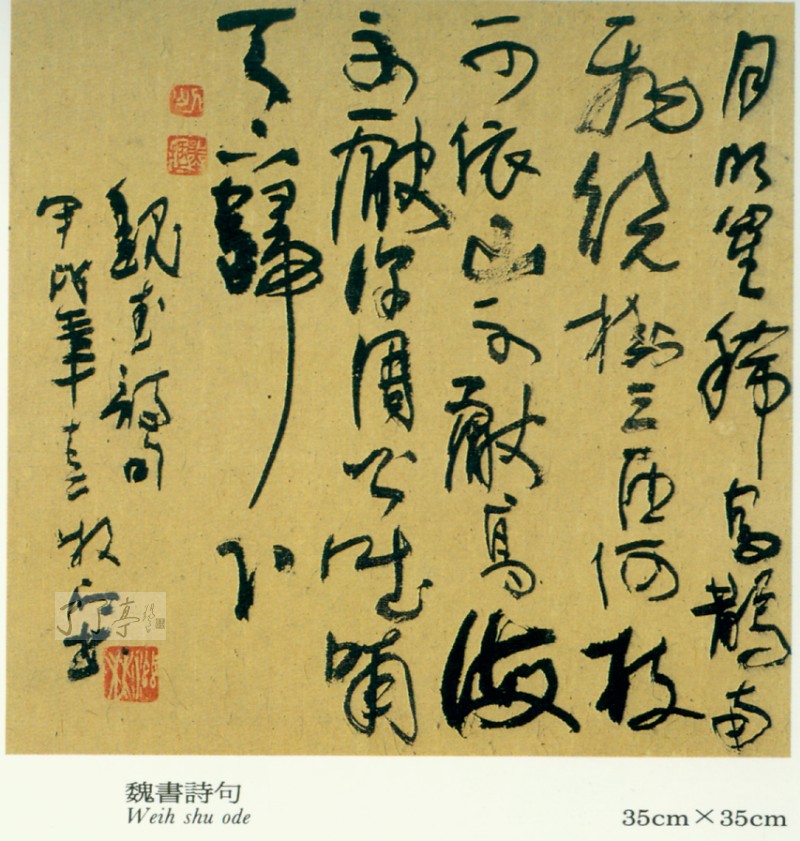 月明星稀烏鵲南
飛繞樹三匝何枝
可依山不厭高海
不厭深周公吐哺
天下歸心
魏武詩句
甲戌年
魏書詩句
Weih shu ode
35cm×35cm